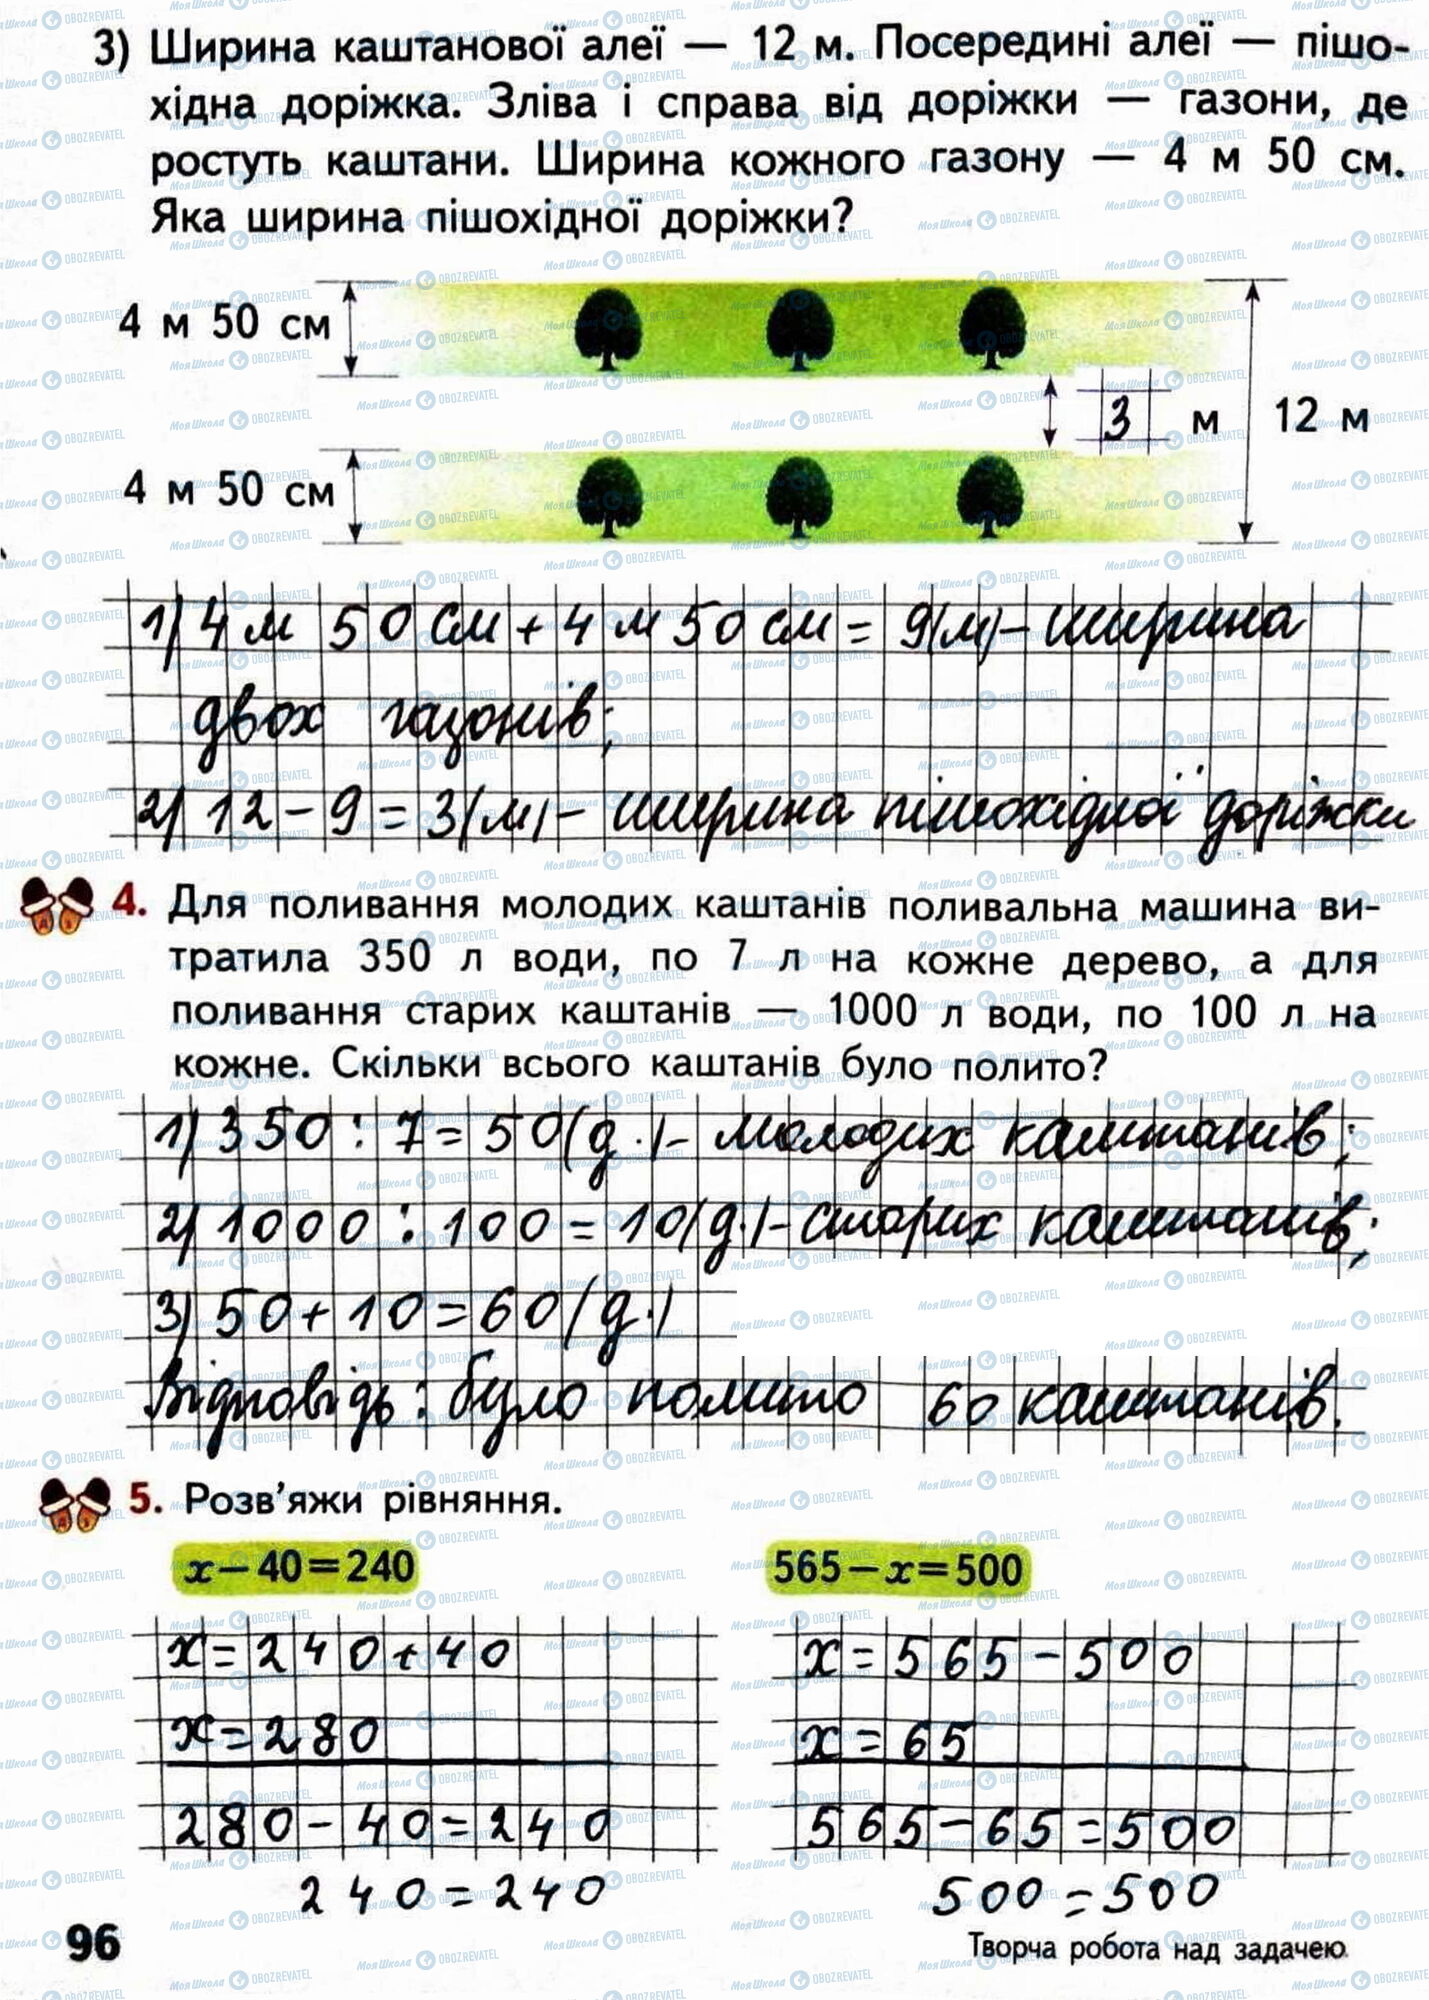 3) Ширина каштанової алеї — 12 м. Посередині алеї — пішо-
хідна доріжка. Зліва і справа від доріжки — газони, де
ростуть каштани. Ширина кожного газону — 4 м 50 см.
Яка ширина пішохідної доріжки?
4 м 50 см
3 м 12 м
4 м 50 см
1) 4 м 50 см + 4 м 50 см = 9 (м) – ширина
двох газонів;
2) 12 – 9 = 3 (м) – ширина пішохідної доріжки
4. Для поливання молодих каштанів поливальна машина ви-
тратила 350 л води, по 7 л на кожне дерево, а для
поливання старих каштанів — 1000 л води, по 100 л на
кожне. Скільки всього каштанів було полито?
1) 350 : 7 = 50 (д.) – молодих каштанів;
2) 1000 : 100 = 10 (д.) – старих каштанів;
3) 50 + 10 = 60 (д.)
Відповідь: було полито 60 каштанів.
5. Розв'яжи рівняння.
x – 40 = 240 565 – x = 500
x = 240 + 40 x = 565 – 500
x = 280 x = 65
280 – 40 = 240 565 – 65 = 500
240 = 240 500 = 500
96 Творча робота над задачею
МояШкола OBOZREVATEL